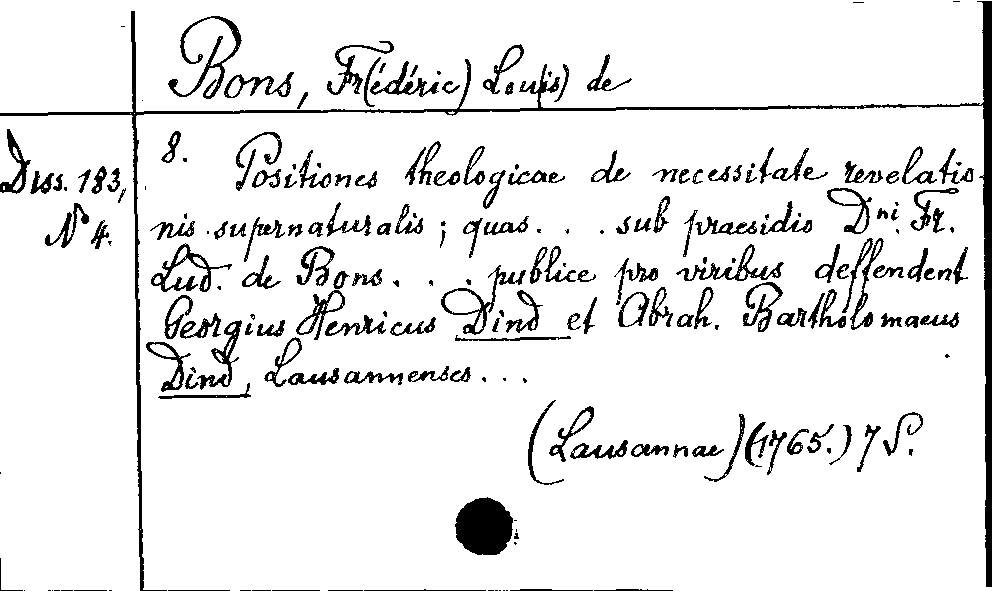 Bons, Fr(édéric) Lou(is) de
8.
Diss. 183,
N 4.
Positiones theologicae de necessitate revelatio-
nis supernaturalis; quas . . . sub praesidio Dni. Fr.
Lud. de Bons . . . publice pro viribus deffendent
Georgius Henricus Dind et Abrah. Bartholomaeus
Dind, Lausannenses . . .
(Lausannae) (1765.) 7 S.